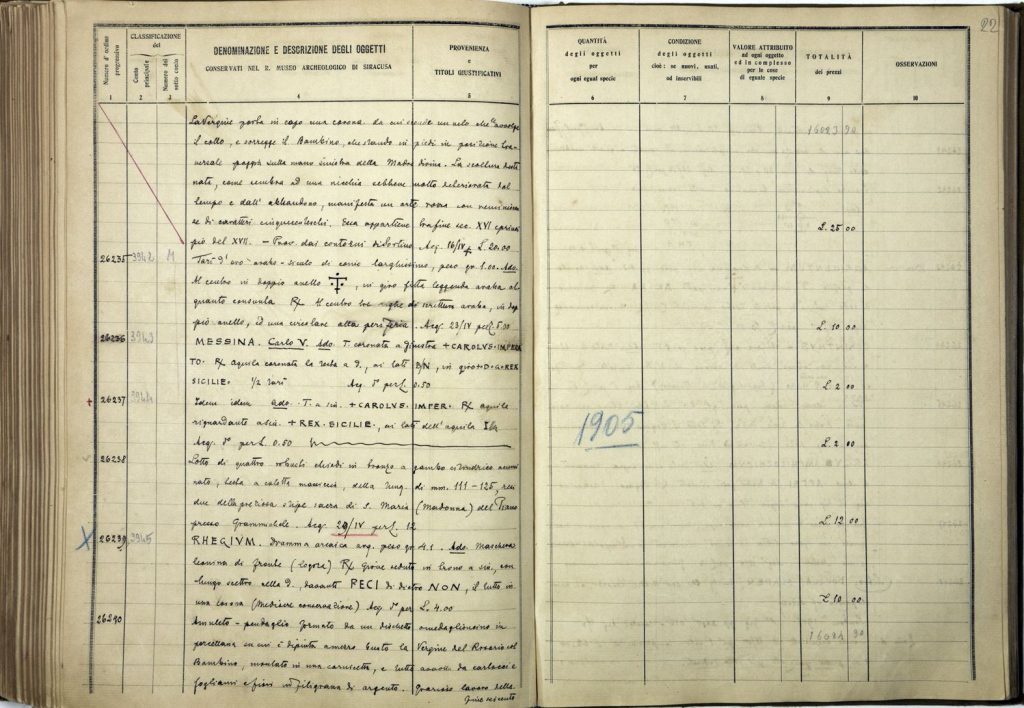 22
Numero d'ordine progressivo
CLASSIFICAZIONE del
Conto principale
Numero del sotto conto
DENOMINAZIONE E DESCRIZIONE DEGLI OGGETTI
CONSERVATI NEL R. MUSEO ARCHEOLOGICO DI SIRACUSA
PROVENIENZA
e
TITOLI GIUSTIFICATIVI
QUANTITÀ
degli oggetti
per
ogni egual specie
CONDIZIONE
degli oggetti
cioè: se nuovi, usati,
od inservibili
VALORE ATTRIBUITO
ad ogni oggetto
ed in complesso
per le cose
di eguale specie
TOTALITÀ
dei prezzi
OSSERVAZIONI
1 2 3 4 5 6 7 8 9 10
La Vergine porta in capo una corona da cui scende un velo che le avvolge
il collo, e sorregge il Bambino, che stando in piedi in posizione tra-
versale poggia sulla mano sinistra della Madre divina. La scultura desti-
nata, come sembra ad una nicchia sebbene molto deteriorata dal
tempo e dall'abbandono, manifesta un arte rozza con reminiscen-
se di caratteri cinquecenteschi. Essa appartiene tra fine sec. XVI e princi-
pio del XVII. - Prov. dai contorni di Sortino Acq. 16/IV L. 20.00
26235 3942 M Tarì d'oro arabo-siculo di conio larghissimo, peso gr. 1.00. Ado.
Al centro in doppio anello, in giro fitta leggenda araba al
quanto consunta Rx Al centro tre righe di scrittura araba, in dop
pio anello, ed una circolare alla periferia. Acq. 23/IV per L. 5.00
26236 3943 MESSINA. Carlo V. Ado. T. coronata a sinistra + CAROLVS · IMPERA
TO. Rx aquila coronata la testa a D., ai lati, in giro + D · G · REX
SICILIE · 1/2 tarì Acq. d° per L. 0.50
26237 3944 Idem idem Ado. T. a sin. + CAROLVS · IMPER. Rx aquila
riguardante a sin. + REX · SICILIE ·, ai lati dell'aquila
Acq. d° per L. 0.50
26238 Lotto di quattro robusti chiodi in bronzo a gambo cilindrico acumi
nato, testa a calotta massiccia, della lung. di mm. 111-125, resi
due della preziosa stipe sacra di S. Maria (Madonna) del Piano
presso Grammichele. Acq. 29/IV per L. 12
26239 3945 RHEGIVM. Dramma arcaica arg. peso gr. 4.1. Ado. Maschera
leonina di fronte (logora) Rx Giove seduto in trono a sin., con
lungo scettro nella D., davanti RECI di dietro NON, il tutto in
una corona (Mediocre conservazione) Acq. d° per L. 4.00
26290 Amuleto - pendaglio formato da un dischetto o medaglioncino in
porcellana su cui è dipinta a mezzo busto la Vergine del Rosario col
Bambino, montato in una cornicetta, e tutto avvolto da cartocci e
fogliami e fiori in filigrana di argento. Grazioso lavoro della
fine seicento
16023 90
L. 25 00
L. 10 00
L. 2 00
L. 2 00
L. 12 00
L. 10 00
16024 90
1905